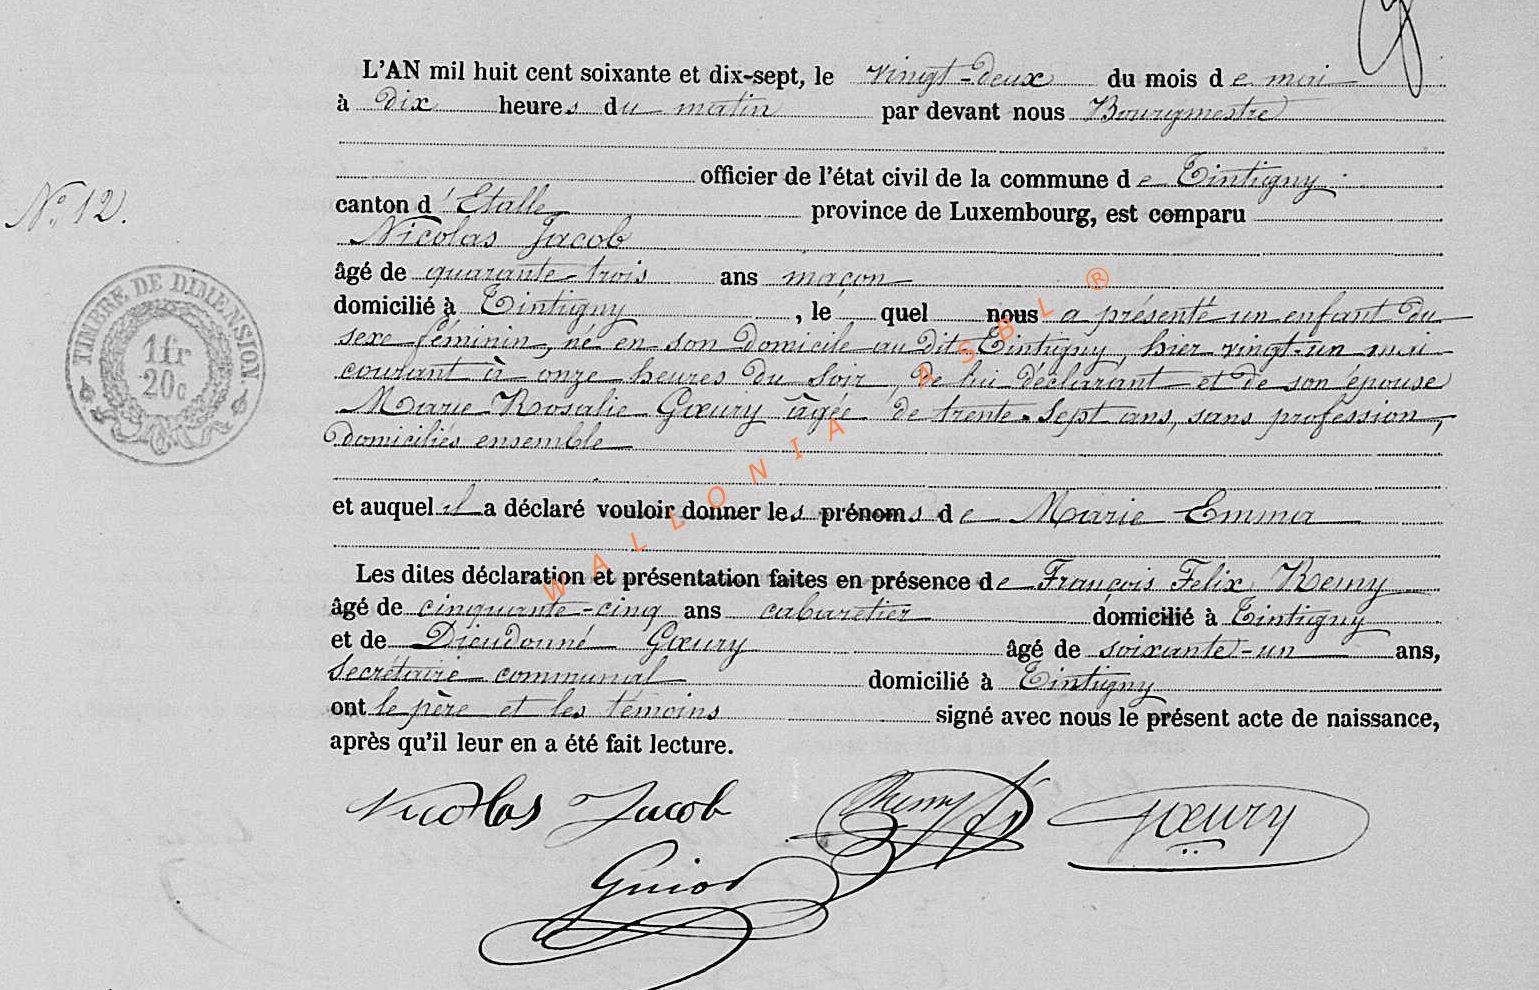 L'AN mil huit cent soixante et dix-sept, le vingt-deux du mois de mai
à dix heures du matin par devant nous Bourgmestre
officier de l'état civil de la commune de Tintigny
canton d'Etalle province de Luxembourg, est comparu
Nicolas Jacob
âgé de quarante-trois ans maçon
domicilié à Tintigny, le quel nous a présenté un enfant du
sexe féminin, né en son domicile au dit Tintigny, hier vingt-un mai
courant à onze heures du soir, de lui déclarant et de son épouse
Marie Rosalie Gœury âgée de trente-sept ans, sans profession,
domiciliés ensemble
et auquel il a déclaré vouloir donner les prénoms de Marie Emma
Les dites déclaration et présentation faites en présence de François Felix Remy
âgé de cinquante-cinq ans cabaretier domicilié à Tintigny
et de Dieudonné Gœury âgé de soixante-un ans,
secrétaire communal domicilié à Tintigny
ont le père et les témoins signé avec nous le présent acte de naissance,
après qu'il leur en a été fait lecture.
Nicolas Jacob Remy Gœury
No. 12.
TIMBRE DE DIMENSION.
1fr
20c
WALLONIA ASBL ®